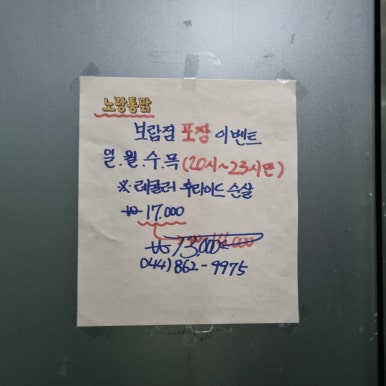 노랑통닭
보람점 포장 이벤트
일.월.수.목(20시~23시만)
※.레귤러 후라이드 순살
₩ 17.000
₩ 13.000
044)862-9975